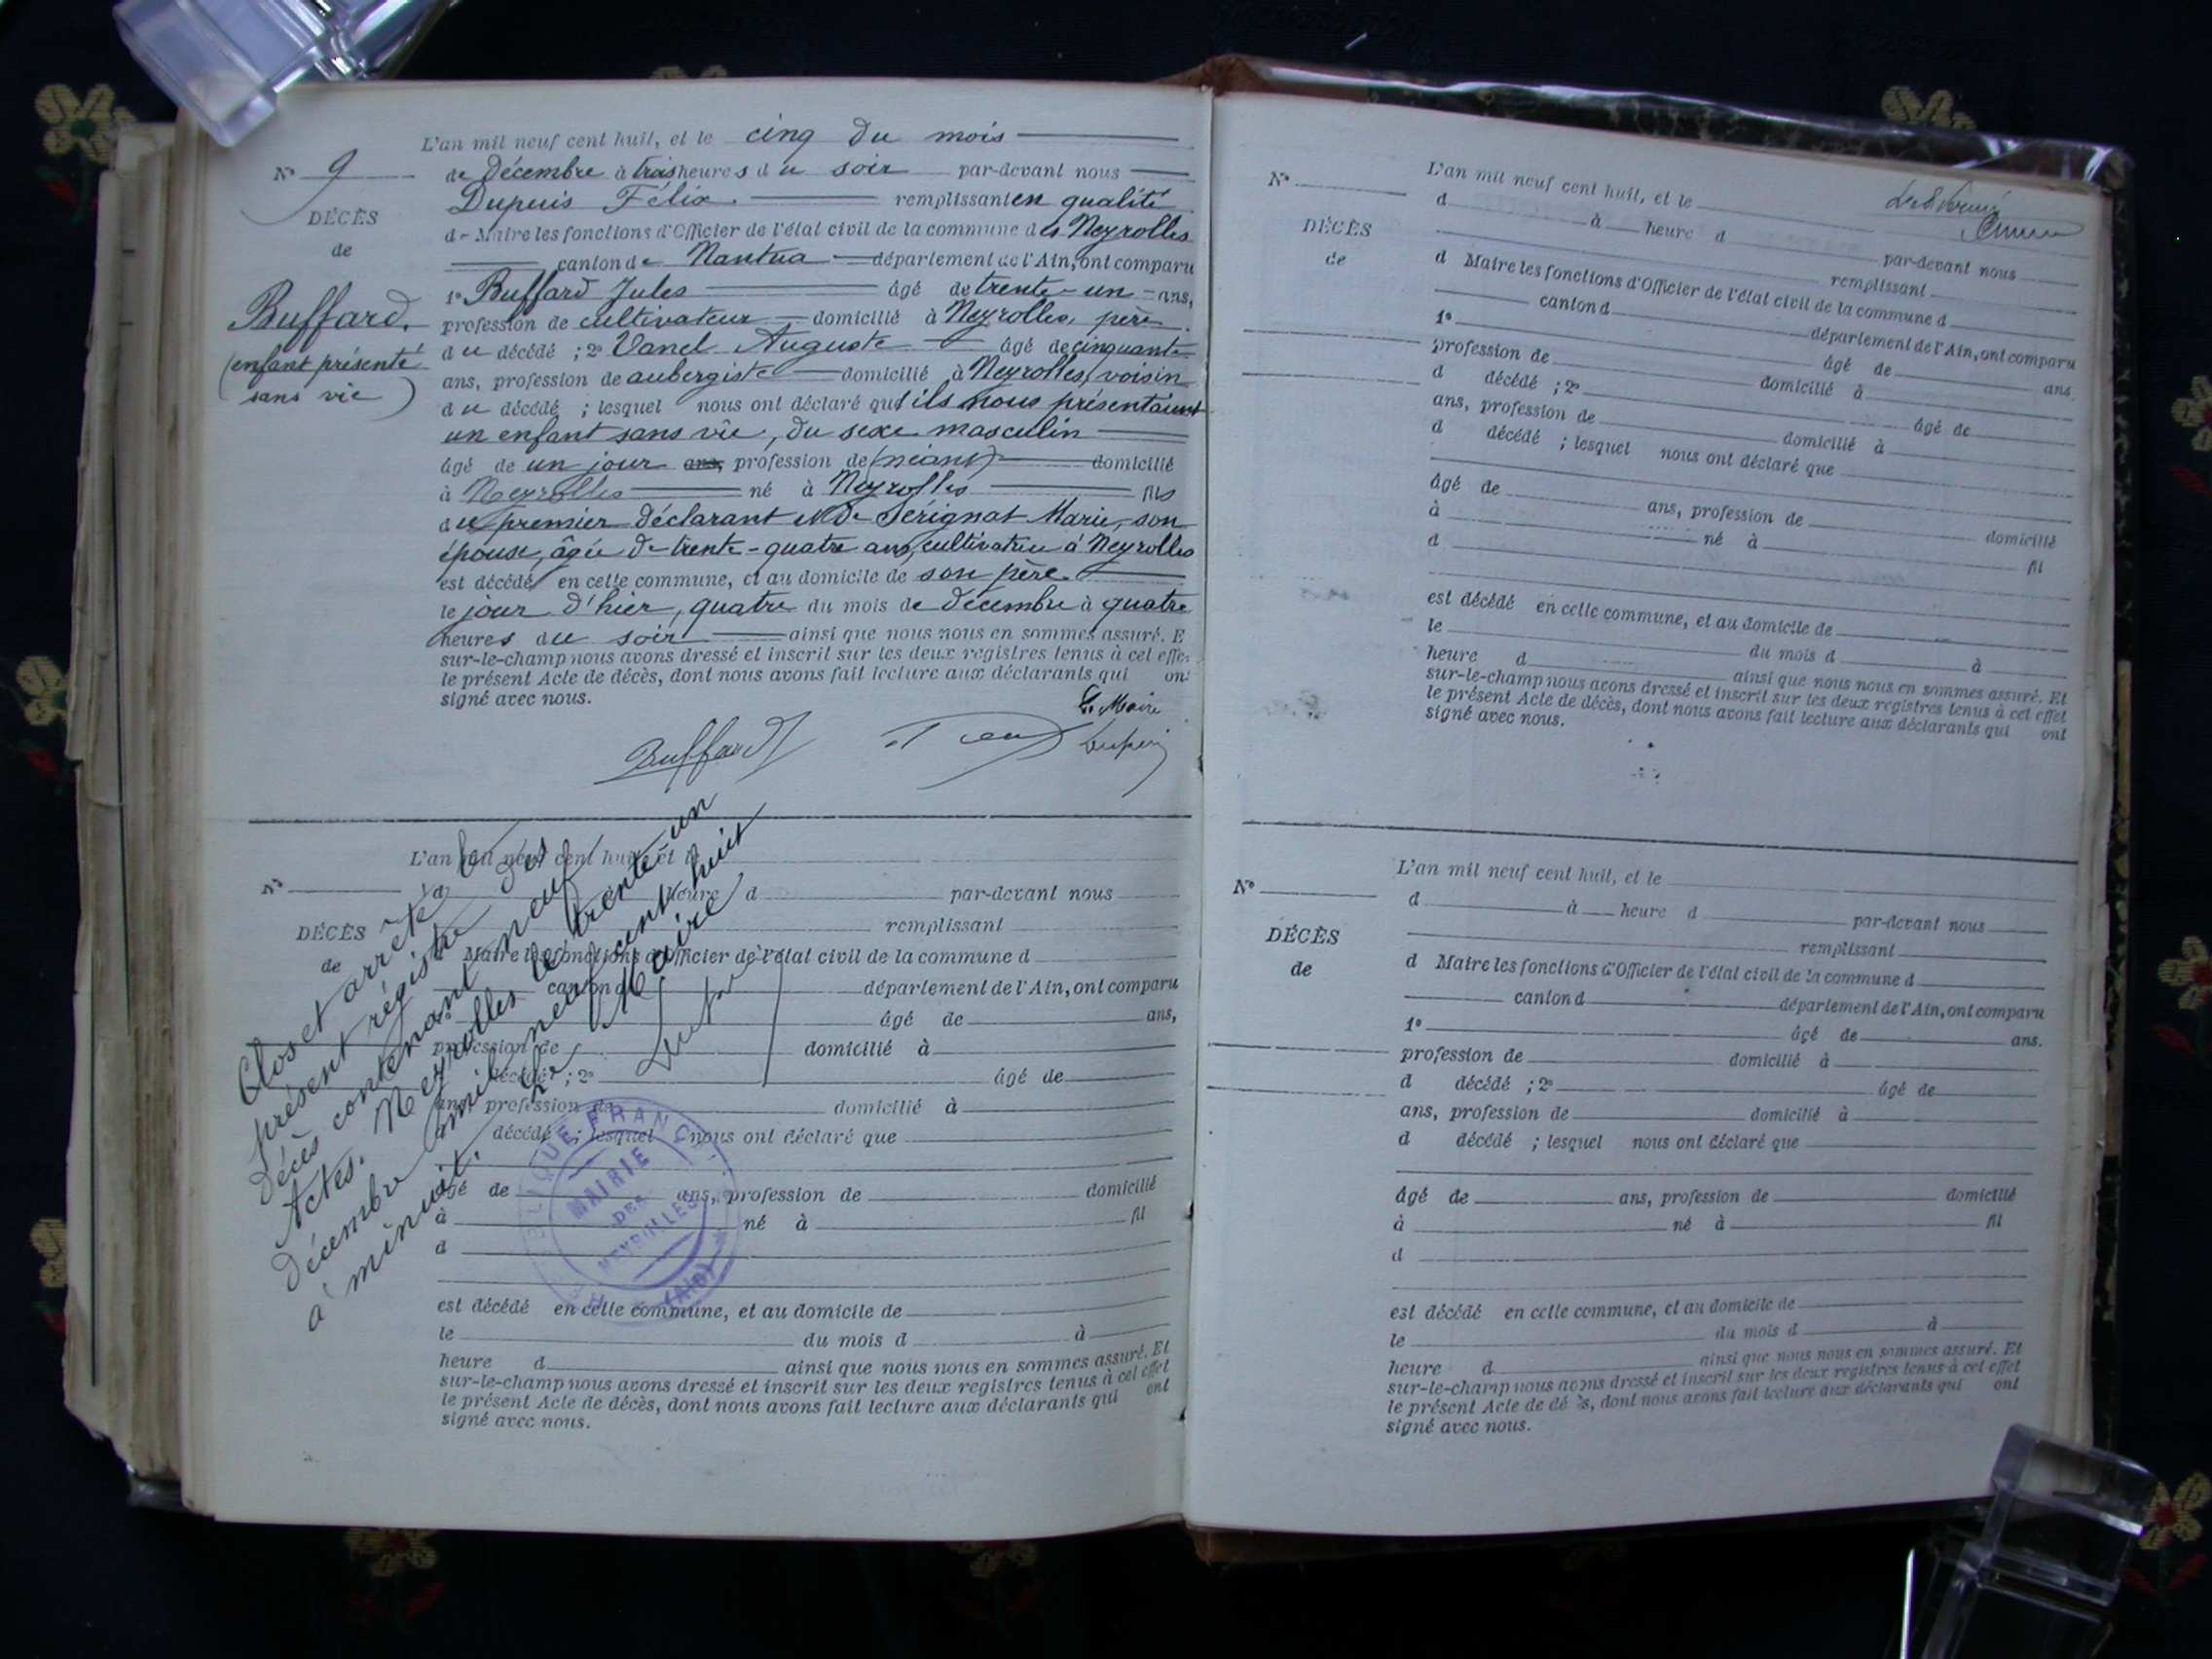 L'an mil neuf cent huit, et le cinq du mois
de Décembre à trois heures du soir par-devant nous
Dupuis Félix. remplissant en qualité
de Maire les fonctions d'Officier de l'état civil de la commune des Neyrolles
canton de Nantua département de l'Ain, ont comparu
1° Buffard Jules âgé de trente-un ans,
profession de cultivateur domicilié à Neyrolles, père
du décédé ; 2° Vanel Auguste âgé de cinquante
ans, profession de aubergiste domicilié à Neyrolles, voisin
du décédé ; lesquel nous ont déclaré qu'ils nous présentaient
un enfant sans vie, du sexe masculin
âgé de un jour ans, profession de (néant) domicilié
à Neyrolles né à Neyrolles fils
du premier déclarant et de Sérignat Marie, son
épouse, âgée de trente-quatre ans, cultivatrice à Neyrolles
est décédé en cette commune, et au domicile de son père
le jour d'hier, quatre du mois de décembre à quatre
heures du soir ainsi que nous nous en sommes assuré. E
sur-le-champ nous avons dressé et inscrit sur les deux registres tenus à cet effe
le présent Acte de décès, dont nous avons fait lecture aux déclarants qui on
signé avec nous.
Le Maire
Buffard J
Dupuis
N° 9
DÉCÈS
de
Buffard.
(enfant présenté
sans vie)
L'an mil neuf cent huit, et le
N°
d heure d par-devant nous
DÉCÈS remplissant
de
Maire les fonctions d'Officier de l'état civil de la commune d
canton d département de l'Ain, ont comparu
âgé de ans,
profession de domicilié à
décédé ; 2° âgé de
ans, profession de domicilié à
décédé ; lesquel nous ont déclaré que
âgé de ans, profession de domicilié
à né à fil
d
est décédé en cette commune, et au domicile de
le du mois d à
heure d ainsi que nous nous en sommes assuré. Et
sur-le-champ nous avons dressé et inscrit sur les deux registres tenus à cet effet
le présent Acte de décès, dont nous avons fait lecture aux déclarants qui ont
signé avec nous.
Clos et arrêté le
présent régistre des
Décès contenant neuf
Actes. Neyrolles le trente-un
décembre mil neuf cent huit
à minuit. Le Maire
MAIRIE
DES
NEYROLLES
(AIN)
L'an mil neuf cent huit, et le
N°
d à heure d par-devant nous
DÉCÈS remplissant
de
d Maire les fonctions d'Officier de l'état civil de la commune d
canton d département de l'Ain, ont comparu
1° âgé de ans.
profession de domicilié à
d décédé ; 2° âgé de
ans, profession de domicilié à
d décédé ; lesquel nous ont déclaré que
âgé de ans, profession de domicilié
à né à fil
d
est décédé en cette commune, et au domicile de
le du mois d à
heure d ainsi que nous nous en sommes assuré. Et
sur-le-champ nous avons dressé et inscrit sur les deux registres tenus à cet effet
le présent Acte de décès, dont nous avons fait lecture aux déclarants qui ont
signé avec nous.
L'an mil neuf cent huit, et le
N°
d à heure d par-devant nous
remplissant
DÉCÈS
de
d Maire les fonctions d'Officier de l'état civil de la commune d
canton d département de l'Ain, ont comparu
1° âgé de ans.
profession de domicilié à
d décédé ; 2° âgé de
ans, profession de domicilié à
d décédé ; lesquel nous ont déclaré que
âgé de ans, profession de domicilié
à né à fil
d
est décédé en cette commune, et au domicile de
le du mois d à
heure d ainsi que nous nous en sommes assuré. Et
sur-le-champ nous avons dressé et inscrit sur les deux registres tenus à cet effet
le présent Acte de dé s, dont nous avons fait lecture aux déclarants qui ont
signé avec nous.